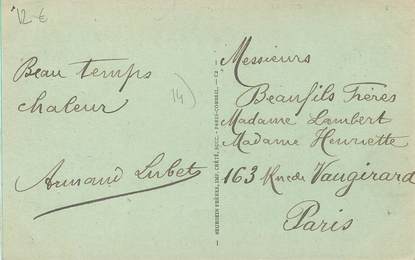 12 €
Beau temps
chaleur
14)
Armand Lubet
BOURGEOIS FRÈRES, IMP. CRÉTÉ, SUCC. - PARIS-CORBEIL
Messieurs
Beaufils Frères
Madame Lambert
Madame Henriette
163 Rue de Vaugirard
Paris